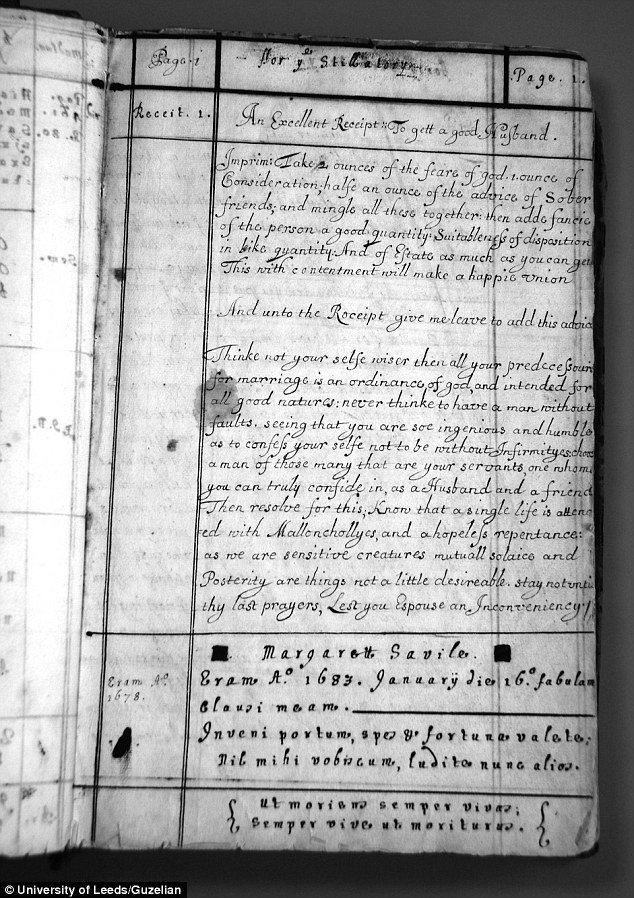 Page. 1
For yᵉ Stillatory
Page. 1.
Receit. 1.
An Excellent Receipt: To gett a good Husband.
Imprim: Take 2 ounces of the feare of god. 1. ounce of
Consideration; halfe an ounce of the advice of Sober
friends; and mingle all these together: then adde fancie
of the person a good quantity: Suitableness of disposition
in like quantity: And of Estate as much as you can gett
This with contentment will make a happie vnion
And unto the Receipt give me leave to add this advice
Thinke not your selfe wiser then all your predecessours
for marriage is an ordinance of god, and intended for
all good natures; never thinke to have a man without
faults, seeing that you are soe ingenious and humble
as to confess your selfe not to be without Infirmityes; choos
a man of those many that are your servants, one whome
you can truly confide in, as a Husband and a friend
Then resolve for this; Know that a single life is atten
ed with Mallonchollyes, and a hopeless repentance:
as we are sensitive creatures mutuall solaice and
Posterity are things not a little desireable. stay not unti
thy last prayers, Lest you Espouse an Inconveniency.
Margarett Savile.
Eram Aᵒ.
1678.
Eram Aᵒ 1683. January die 16ᵒ. fabulam
Clausi meam.
Inveni portum, spes & fortuna valete;
Nil mihi vobiscum, ludite nunc alios.
{ Ut moriens semper vivas;
Semper vive ut moriturus. }
© University of Leeds/Guzelian